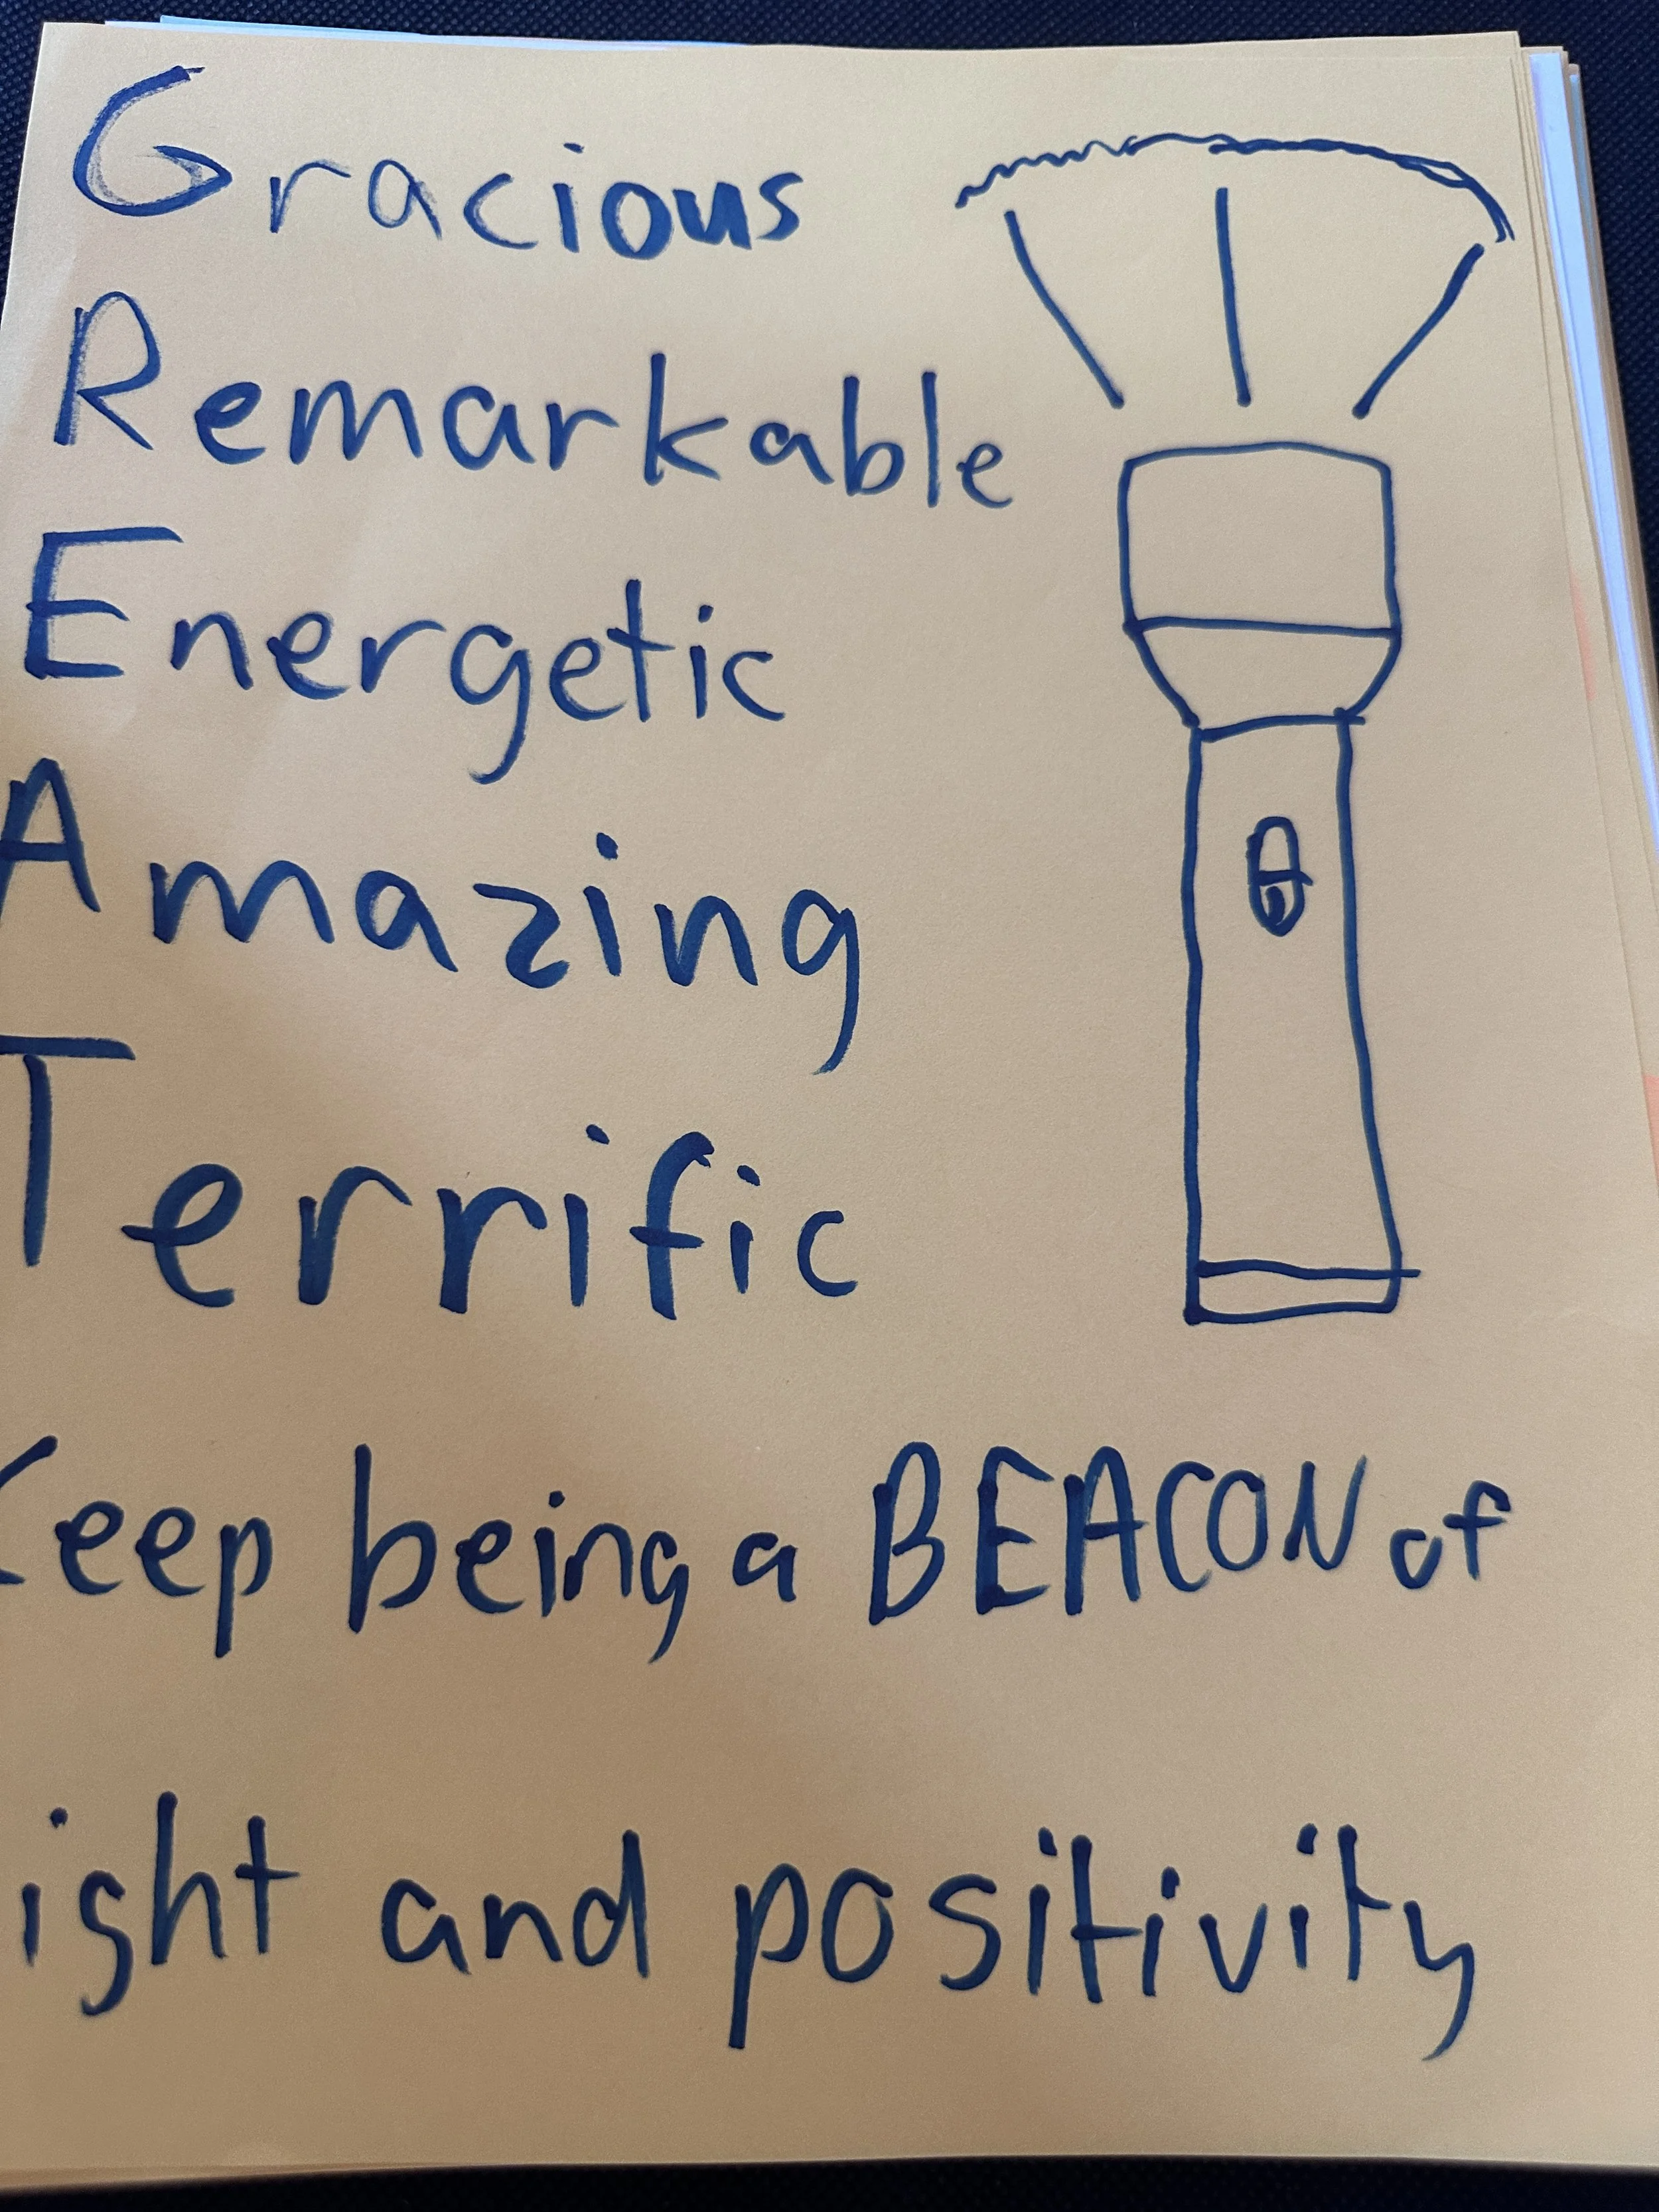 Gracious
Remarkable
Energetic
Amazing
Terrific
Keep being a BEACON of
ight and positivity